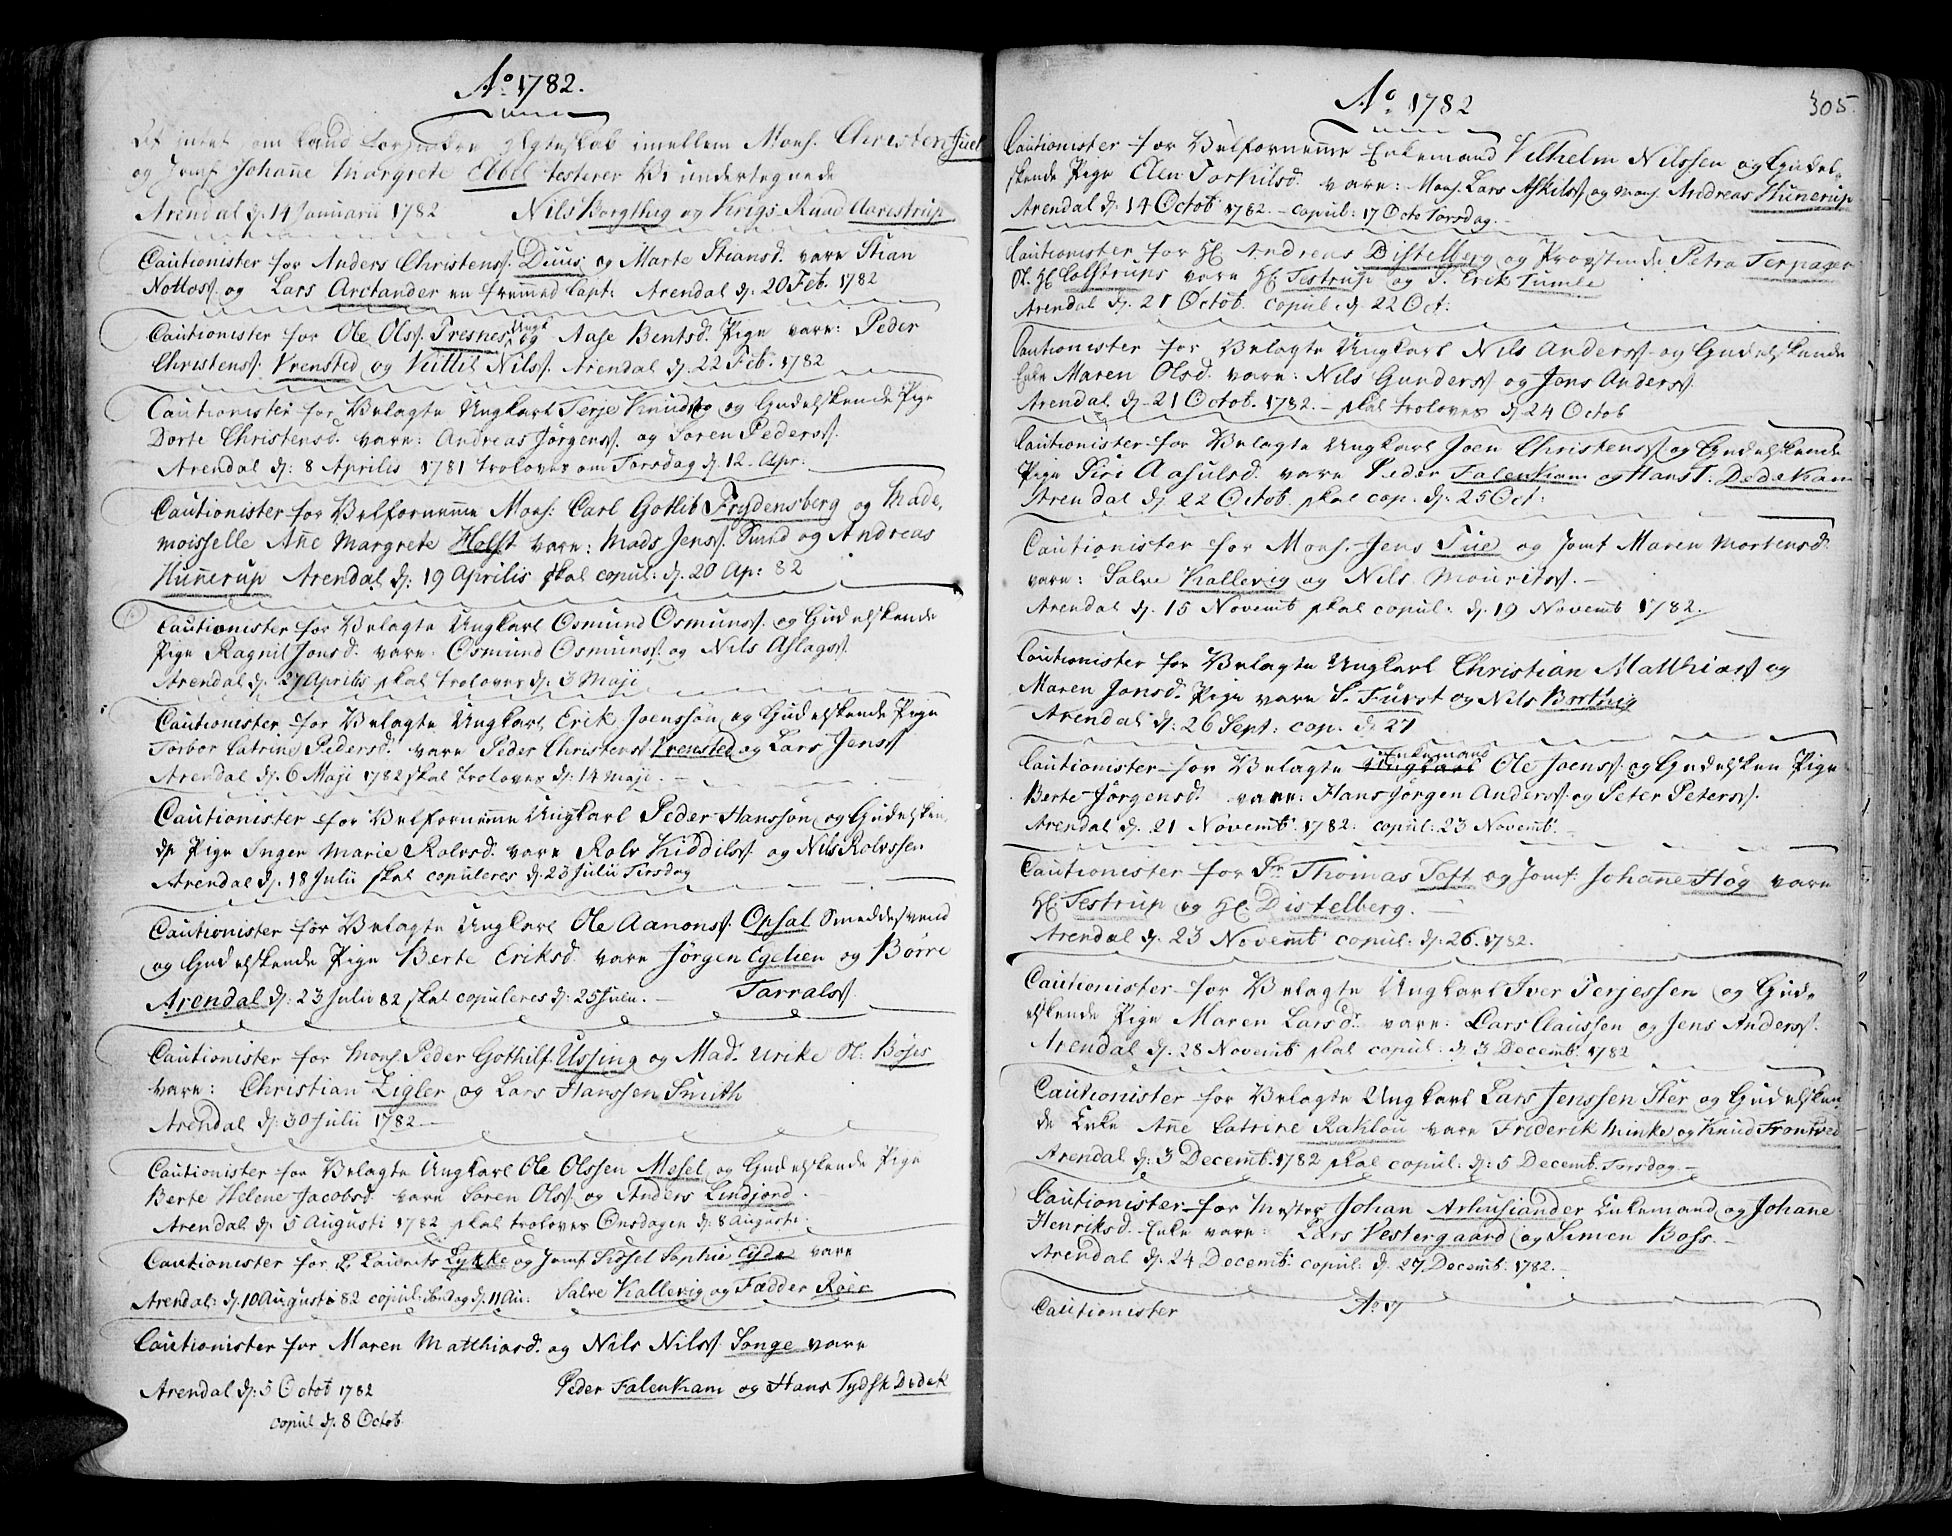 Ao 1782.
Det intet som kand forhindre Ægteskab imellem Mons. Christen Juel
og Jomf Johañe Margrete Ebbel testerer Vi undertegnede
Arendal d: 14 Januarii 1782 Nils Borgthig og Krigs Raad Aarestrup
Cautionister for Anders Christens. Duus og Marte Stiansd. vare Stian
Nottos. og Lars Arctander en fremmed Capt: Arendal d: 20 Feb. 1782
Cautionister for Ole Ols. Tresnes Ungk og Aase Bentsd. Pige vare: Peder
Christens. Vrensted og Kittil Nils. Arendal d: 22 Feb. 1782
Cautionister for Velagte Ungkarl Terje Knuds. og Gudelskende Pige
Dorte Christensd. vare: Andreas Jørgens. og Søren Peders.
Arendal d: 8 Aprilis 1781 troloves om Torsdag d: 12. Apr:
Cautionister for Velfornemme Mons: Carl Gotlib Frydensberg og Made,
moisselle Añe Margrete Holst vare: Mads Jens. Smed og Andreas
Huñerup Arendal d: 19 Aprilis skal copul: d: 20 Ap: 82
Cautionister for Velagte Ungkarl Osmund Osmuns. og Gudelskende
Pige Ragnil Jonsd. vare: Osmund Osmuns. og Nils Aslags.
Arendal d: 27 Aprilis skal troloves d: 3 Maji
Cautionister for Velagte Ungkarl Erik Joenssøn og Gudelskende Pige
Torbor Catrine Pedersd. vare Peder Christens. Vrensted og Lars Jens.
Arendal d: 6 Maji 1782 skal troloves d: 14 Maji.
Cautionister for Velfornemme Ungkarl Peder Hanssøn og Gudelsken,
de Pige Inger Marie Rolvsd. vare Rolv Kiddils. og Nils Rolvssen
Arendal d: 18 Julii skal copuleres d: 23 Julii Tirsdag
Cautionister for Velagte Ungkarl Ole Aanons. Opsal Smeddesvend
og Gudelskende Pige Berte Eriksd. vare Jørgen Egelien og Børre
Arendal d: 23 Julii 82 skal copuleres d: 25 Julii. Tarrals.
Cautionister for Mons. Peder Gothilf Ussing og Mad. Urike Sl: Bøjes
vare: Christian Zigler og Lars Hanssen Smith
Arendal d: 30 Julii 1782
Cautionister for Velagte Ungkarl Ole Olssen Mesel og Gudelskende Pige
Berte Helene Jacobsd. vare Søren Ols. og Anders Lindjord.
Arendal d: 5 Augusti 1782 skal troloves Onsdagen d: 8 Augusti.
Cautionister for Laurits Lykke og Jomf Sidsel Sophie Eyde vare
Arendal: d: 10 Augusti 82 copul: Søndag d: 11 Au: Salve Kallevig og Fædder Roer
Cautionister for Maren Matthiasd. og Nils Nils. Songe vare
Arendal d: 5 Octob 1782 Peder Falenkam og Hans Tydsk Dedek
copul d: 8 Octob.
Ao 1782
305
Cautionister for Velfornemme Enkemand Vilhelm Nilssen og Gudel,
skende Pige Elen Torkilsd. vare: Mons. Lars Askils. og Mons. Andreas Hunerup
Arendal d: 14 Octob 1782. copul: 17 Octo Torsdag.
Cautionister for Hr Andreas Distelberg og Provstinde Petra Terpager
Sl. Hr Colstrups vare Hr Testrup og S. Erik Tumle
Arendal d: 21 Octob. copul: d: 22 Oct:
Cautionister for Velagte Ungkarl Nils Anders. og Gudelskende
Enke Maren Olsd. vare: Nils Gunders. og Jens Anders.
Arendal d: 21 Octob. 1782. skal troloves d: 24 Octob
Cautionister for Velagte Ungkarl Joen Christens. og Gudelskende
Pige Siri Aasulsd. vare Peder Falenkam og Hans T. Dedekam
Arendal d: 22 Octob skal cop. d: 25 Oct:
Cautionister for Mons. Jens Tue og Jomf Maren Mortensd.
vare: Salve Kallevig og Nils Mourits.
Arendal d: 15 Novemb skal copul: d: 19 Novemb 1782.
Cautionister for Velagte Ungkarl Christian Matthias. og
Maren Jonsd. Pige vare S. Fürst og Nils Borthig
Arendal d: 26 Sept: cop. d: 27
Cautionister for Velagte Ungkarl Enkemand Ole Joens. og Gudelsken Pige
Berte Jørgensd. vare: Hans Jørgen Anders. og Peter Peters.
Arendal d: 21 Novemb. 1782. copul: 23 Novemb.
Cautionister for Sr Thomas Toft og Jomf. Johañe Høg vare
Hr. Testrup og Hr. Distelberg.
Arendal d: 23 Novemb copul: d: 26. 1782.
Cautionister for Velagte Ungkarl Iver Terjessen og Gud,
elskende Pige Maren Larsdr. vare: Lars Claussen og Jens Anders.
Arendal d: 28 Novemb skal copul: d: 3 Decemb. 1782
Cautionister for Velagte Ungkarl Lars Jenssen Ster og Gudelsken,
de Enke Añe Catrine Raklou vare Friderik Minke og Knud
Arendal d: 3 Decemb. 1782 skal copul: d: 5 Decemb. Torsdag.
Cautionister for Mester Johan Arhusiander Enkemand og Johañe
Henriksd. Enke vare: Lars Vestergaard og Simon Boss.
Arendal d: 24 Decemb. copul: d: 27 Decemb. 1782.
Cautionister Ao 17